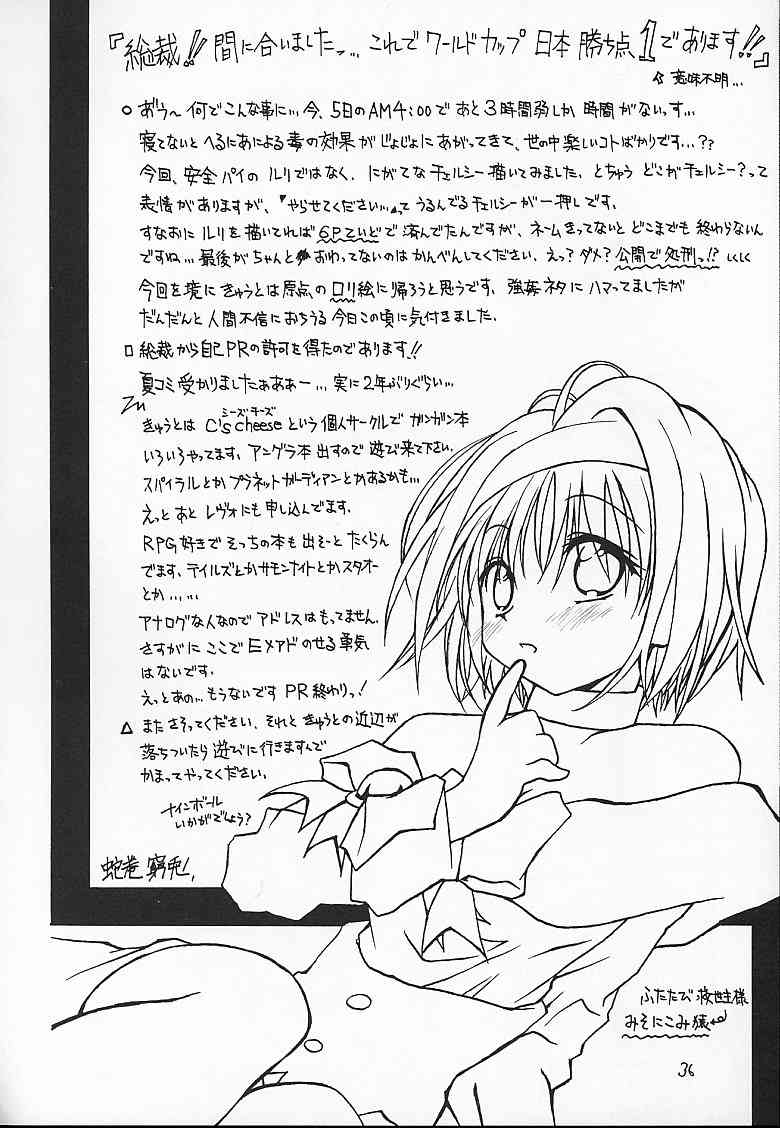 『総裁!! 間に合いましたっ… これで ワールドカップ 日本 勝ち点 1 であります!!』
意味不明…
○ あぅ〜 何でこんな事に… 今、5日のAM4:00で あと3時間弱しか 時間がないっす…
寝てないと へるにあによる毒の効果が じょじょにあがってきて、世の中楽しいコトばかりです…??
今回、安全パイの ルリではなく、にがてな チェルシー描いてみました。とちゅう どこがチェルシー?って
表情がありますが、『やらせてください…』って うるんでるチェルシーが一押しです。
すなおに ルリを描いてれば 6Pていどで 済んでたんですが、ネームきってないと どこまでも 終わらないん
ですね… 最後がちゃんと おわってないのはかんべんしてください。えっ?ダメ? 公開で処刑っ!?
今回を境に きゅうとは 原点のロリ絵に帰ろうと思うです。強姦ネタに ハマってましたが
だんだんと 人間不信におちうる 今日この頃に 気付きました。
□ 総裁から自己PRの許可を得たのであります!!
夏コミ 受かりましたぁああー… 実に2年ぶりぐらい…
シーズ・チーズ
きゅうとは C's cheese という個人サークルで ガンガン本
いろいろやってます。アングラ本 出すので 遊び来て下さい。
スパイラルとか プラネットガーディアンとかあるかも…
えっと あと レヴォにも申し込んでます。
RPG好きで そっちの本も 出そーと たくらん
でます。テイルズとか サモンナイトとか スタオー
とか……
アナログな人なので アドレスはもってません。
さすがに ここで Eメアド のせる勇気
はないです。
えっとあの… もうないです PR終わりっ!
△ またさそってください。それと きゅうとの近辺が
落ちついたら 遊びに行きますんで
かまってやってください。
ナインボール
いかがでしょう?
蛇巻 窮兎
ふたたび 救世主様
みそにこみ猿
36